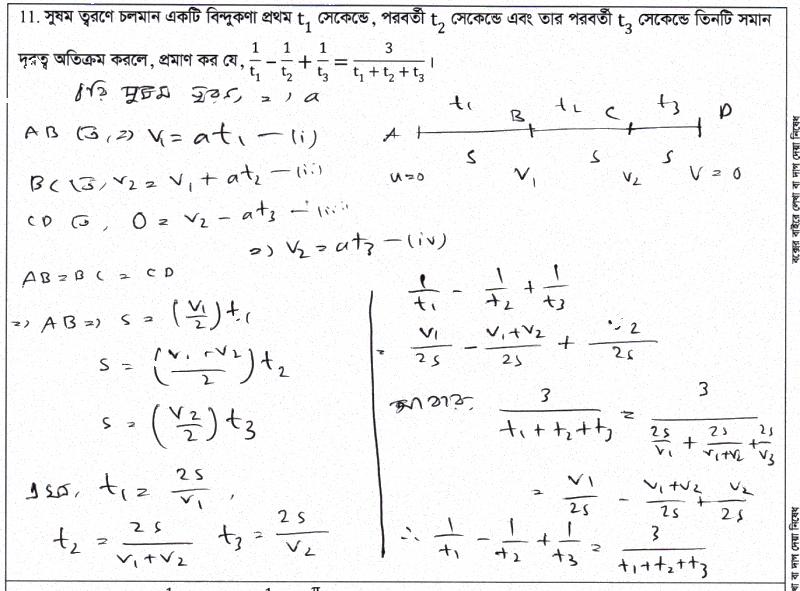 11. সুষম ত্বরণে চলমান একটি বিন্দুকণা প্রথম t₁ সেকেন্ডে, পরবর্তী t₂ সেকেন্ডে এবং তার পরবর্তী t₃ সেকেন্ডে তিনটি সমান
দূরত্ব অতিক্রম করলে, প্রমাণ কর যে, 1/t₁ - 1/t₂ + 1/t₃ = 3/(t₁ + t₂ + t₃)।
ধরি সুষম ত্বরণ, = a
t₁ t₂ t₃
A B C D
s s s
u=0 V₁ V₂ V = 0
AB তে, => V₁ = at₁ —(i)
BC তে, V₂ = V₁ + at₂ —(ii)
CD তে, 0 = V₂ - at₃ —(iii)
=> V₂ = at₃ —(iv)
AB = BC = CD
=> AB => s = (V₁/2) t₁
s = ((V₁ + V₂)/2) t₂
s = (V₂/2) t₃
t₁ = 2s/V₁,
t₂ = 2s/(V₁+V₂) t₃ = 2s/V₂
1/t₁ - 1/t₂ + 1/t₃
= V₁/2s - (V₁+V₂)/2s + 2/2s
আবার, 3/(t₁+t₂+t₃) = 3/(2s/V₁ + 2s/(V₁+V₂) + 2s/V₃)
= V₁/2s - (V₁+V₂)/2s + V₂/2s
∴ 1/t₁ - 1/t₂ + 1/t₃ = 3/(t₁+t₂+t₃)
বক্সের বাইরে লেখা বা দাগ দেয়া নিষেধ
খা বা দাগ দেয়া নিষেধ